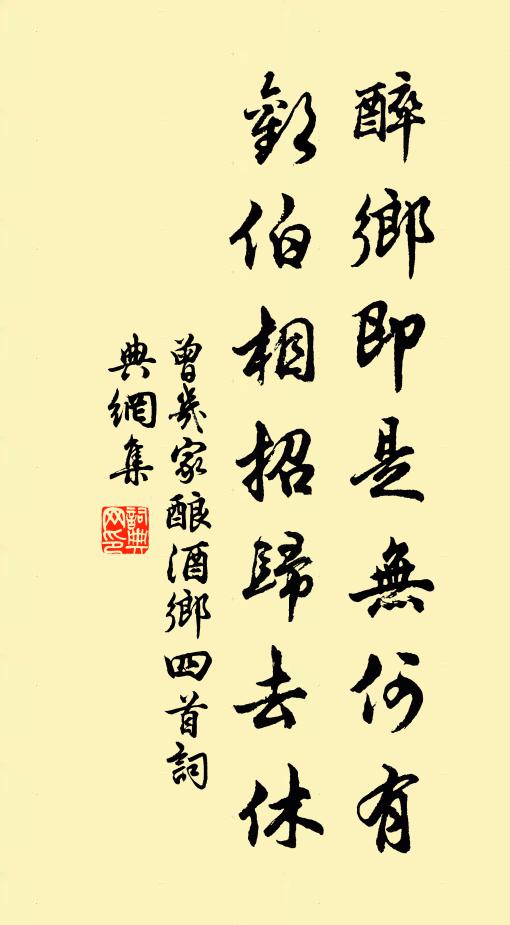 醉鄉即是無何有
歡伯相招歸去休
曾幾家酿酒鄉四首詞
典網集
詞典
网印